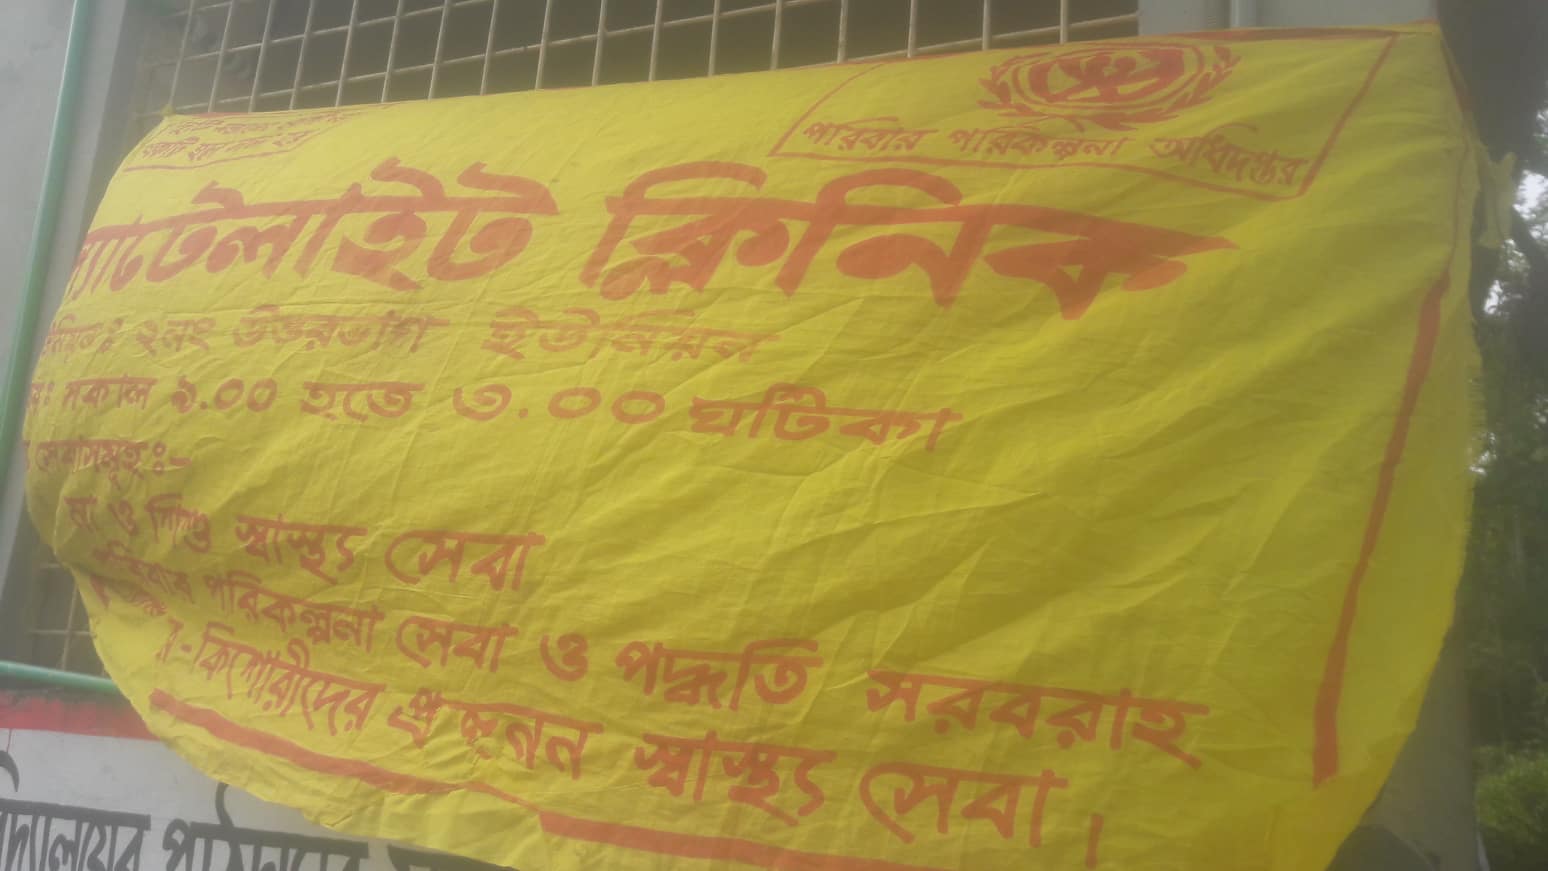 পরিবার পরিকল্পনা অধিদপ্তর
স্যাটেলাইট ক্লিনিক
২নং উত্তরভাগ ইউনিয়ন
সকাল ৯.০০ হতে ৩.০০ ঘটিকা
সেবাসমূহঃ-
মা ও শিশু স্বাস্থ্য সেবা
পরিবার পরিকল্পনা সেবা ও পদ্ধতি সরবরাহ
র-কিশোরীদের প্রজনন স্বাস্থ্য সেবা।